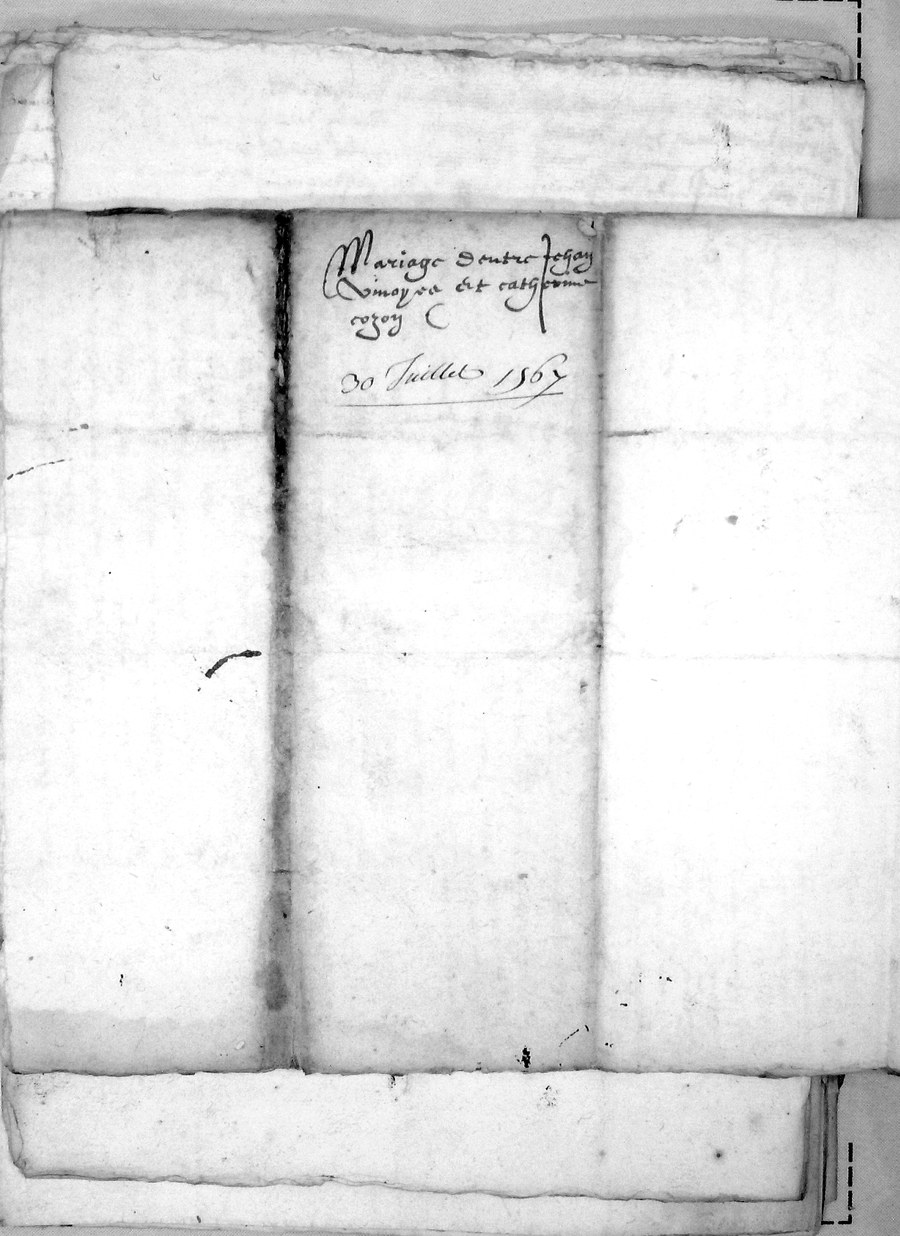 Mariage dentre Jehan
et catherine
cozon
30 Juillet 1567